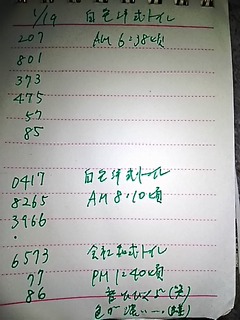 1/19 自宅洋式トイレ
207 AM 6:38頃
801
373
475
57
85
0417 自宅洋式トイレ
8265 AM 8:10頃
3966
6573 会社和式トイレ
77 PM 12:40頃
86 音ひびくぅ(笑)
色が濃い…